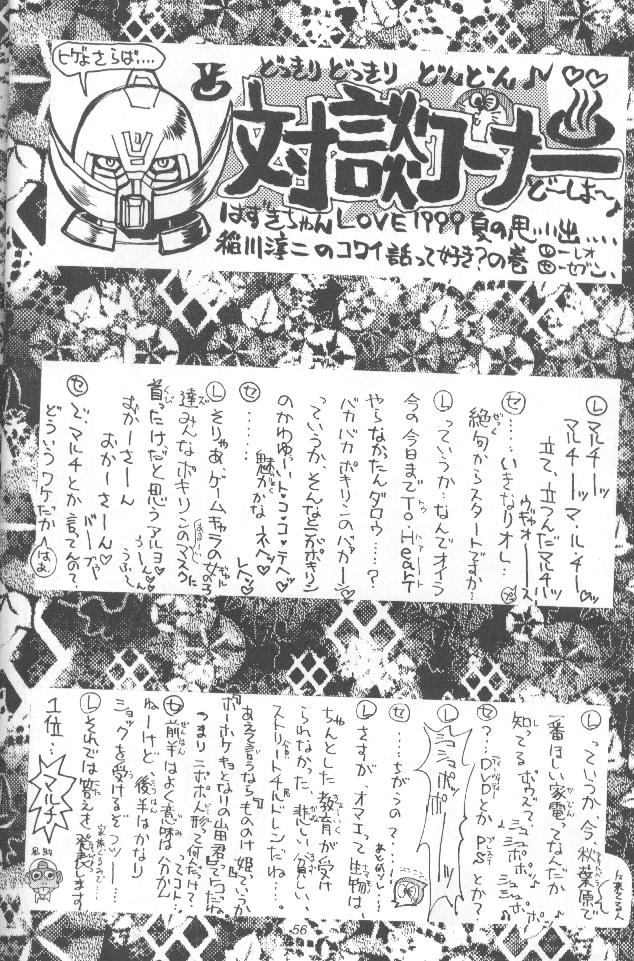 ヒゲよさらば....
どっきりどっきり どんどん♪
対談コーナー
どーしば〜♪
はずきちゃんLOVE1999夏の思い出....
稲川淳二のコワイ話って好き?の巻
Ⓛ—レオ
㋝—セブン
Ⓛマルチーッ マルチーッ マ・ル・チーッ
立て、立つんだマルチッ
ウギャオーース
㋝....いきなりオレ....
絶句からスタートですか....
Ⓛっていうか...なんでオイラ
今の今日までTo Heart
やらなかったんダロウ....?
バカバカポキリンのバカー♡
っていうか、そんなとこがポキリン
のかわゆーいトコ・ココ・テヘ♡
魅力かな ネヘ♡
㋝......
Ⓛそりゃあ、ゲームキャラの女の子
達みんなポキリンのマスクに
首ったけだと思うアルヨ♡
おかーさーん
おかーさーん♡
㋝で、マルチとか言ってんので、
どういうワケだか
はぁ
Ⓛっていうか今 秋葉原で
一番ほしい家電ってなんだか
知ってるボウズ?
㋝?...DVDとか PSとか?
Ⓛシュコシュコポッポー
㋝....ちがうの?....
Ⓛさすがオマエって生物は、
ちゃんとした教育が受け
られなかった、悲しい貧しい、
ストリートチルドレンだね...。
あえて言うなら『もののけ姫』っていうか
『ホーホケキョとなりの山田君』でしだね。
つまりニポポ人形って何だっけ?
ってコト...
㋝前半はよく意味は分かん
ねーけど 後半はかなり
ショックを受けるぞつッー....
Ⓛそれでは答えを、発表します
1位...
マルチ
56